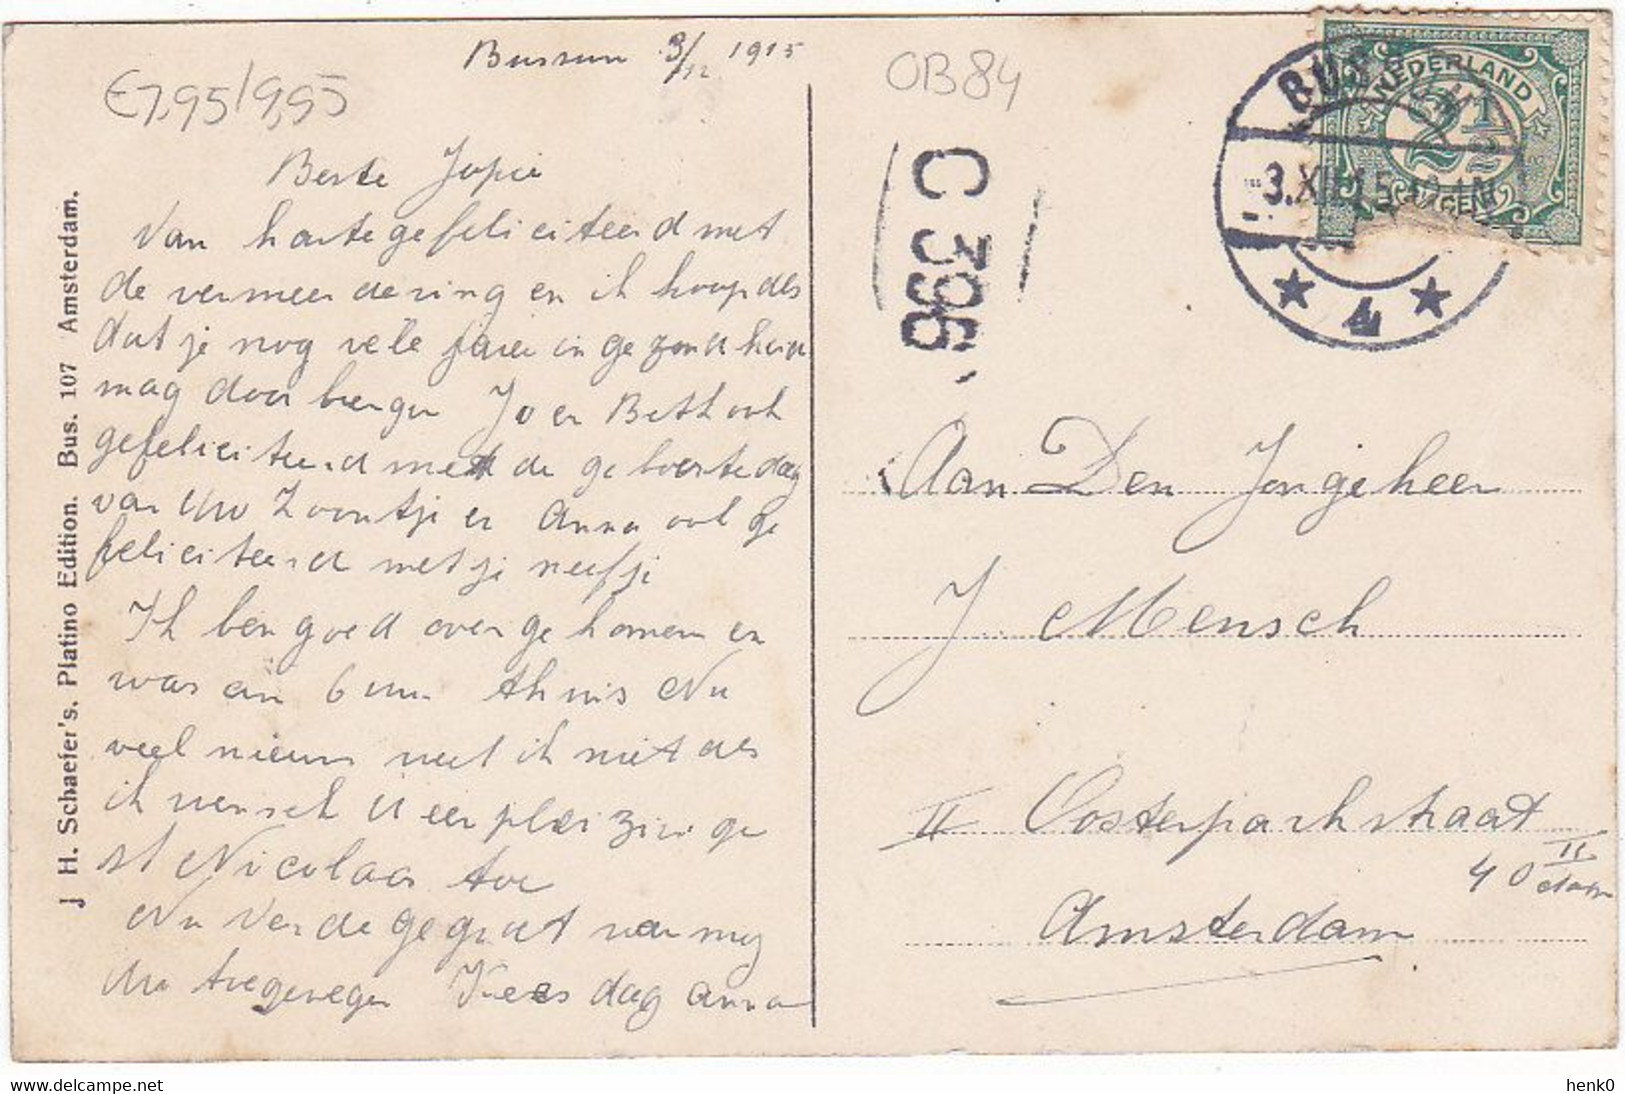 Bussum 3/12 1915
€7,95/9,95
OB84
Beste Jopie
Van harte gefeliciteerd met
de vermeerdering en ik hoop dls
dat je nog vele jaren in gezondheid
mag door brengen Jo en Beth ook
gefeliciteerd met de geboortedag
van Uw Zoontje en Anna ook ge
feliciteerd met je neefje
Ik ben goed over gekomen en
was om 6 uur thuis Nu
veel nieuws weet ik niet als
ik wensch U een plezirige
st Nicolaas toe
Nu Verde gegroet van my
Uw toegenegen Vrees dag Anna
J. H. Schaefer's. Platino Edition. Bus. 107 Amsterdam.
C 396
BUSSUM
-3.XII.15.
4
NEDERLAND
2 1/2
CENT
Aan Den Jongeheer
J Mensch
II Oosterparkstraat
40 II
Amsterdam
© delcampe.net
henk0